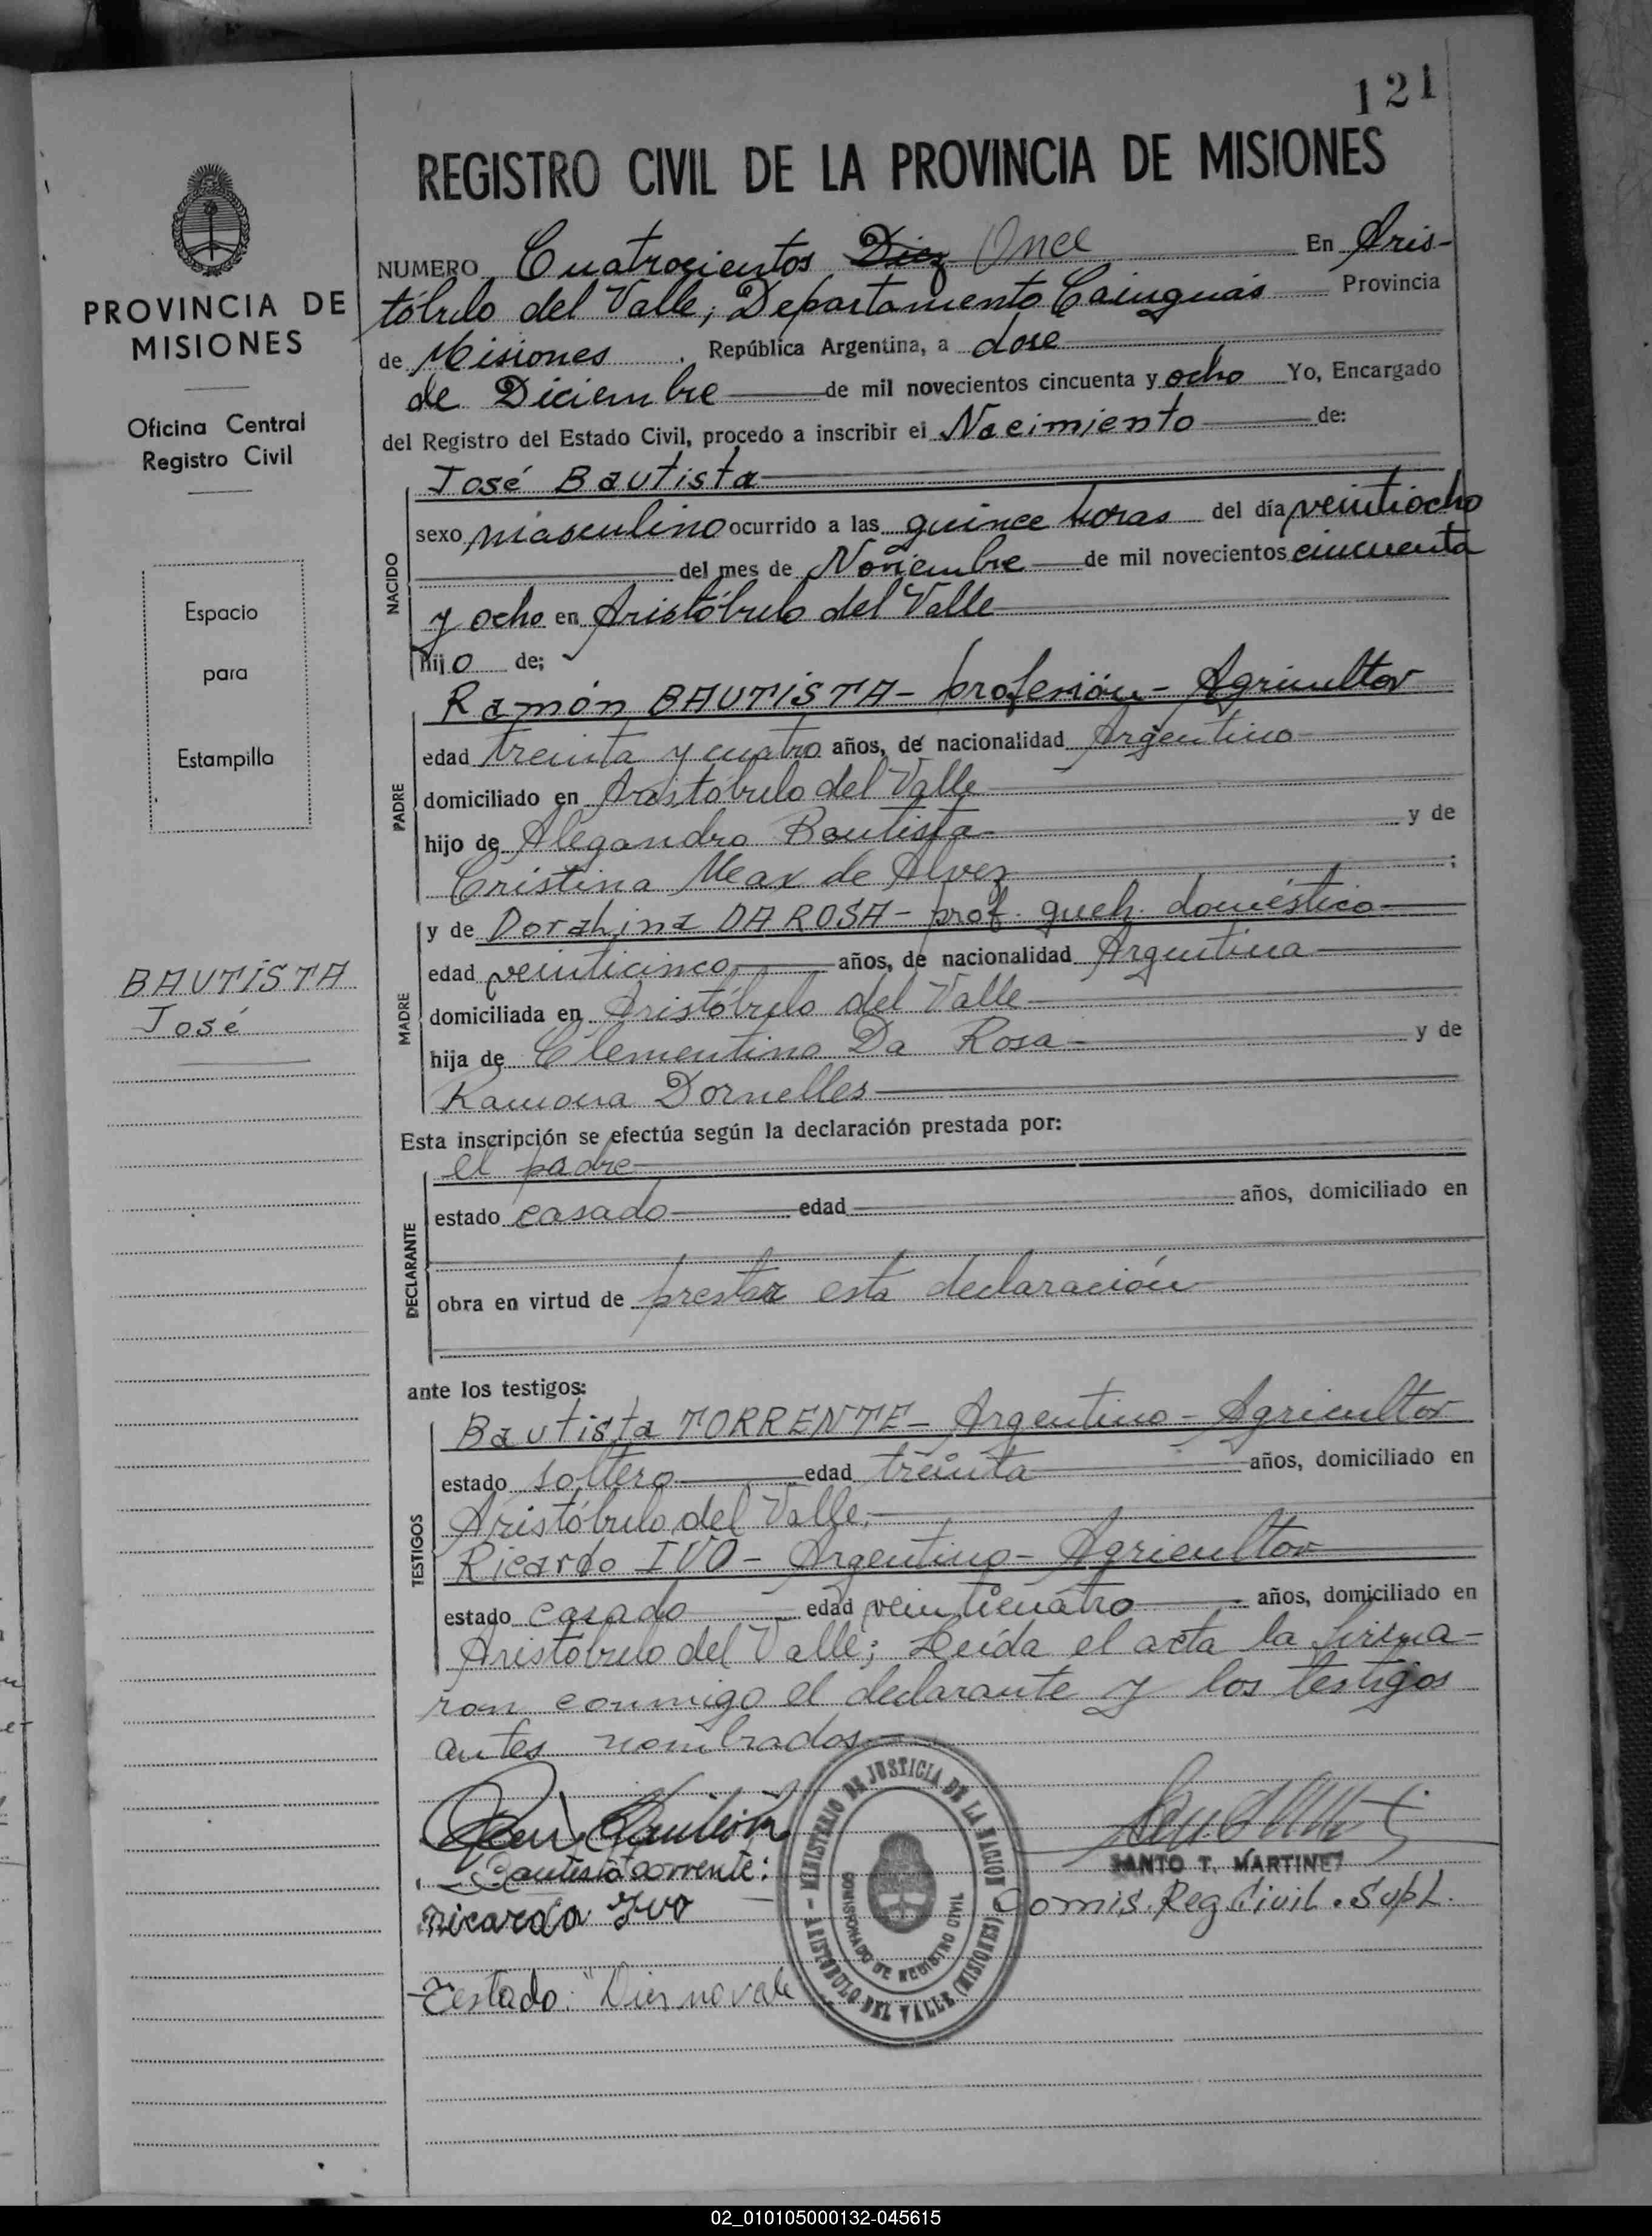 121
REGISTRO CIVIL DE LA PROVINCIA DE MISIONES
NUMERO Cuatrocientos Diez Once En Aris-
tóbulo del Valle, Departamento Cainguás Provincia
de Misiones . República Argentina, a doce
de Diciembre de mil novecientos cincuenta y ocho Yo, Encargado
del Registro del Estado Civil, procedo a inscribir el Nacimiento de:
José Bautista
NACIDO
sexo masculino ocurrido a las quince horas del día veintiocho
del mes de Noviembre de mil novecientos cincuenta
y ocho en Aristóbulo del Valle
hijo de;
Ramón BAUTISTA - profesión - Agricultor
PADRE
edad treinta y cuatro años, de nacionalidad Argentino
domiciliado en Aristóbulo del Valle
hijo de Alegandro Bautista y de
Cristina de Alvez ;
y de Dorahina DA ROSA - prof. queh. doméstico
MADRE
edad veinticinco años, de nacionalidad Argentina
domiciliada en Aristóbulo del Valle
hija de Clementino Da Rosa y de
Ramona Dornelles
Esta inscripción se efectúa según la declaración prestada por:
el padre
DECLARANTE
estado casado edad años, domiciliado en
obra en virtud de prestar esta declaración
ante los testigos:
Bautista TORRENTE - Argentino - Agricultor
TESTIGOS
estado soltero edad treinta años, domiciliado en
Aristóbulo del Valle.
Ricardo IVO - Argentino - Agricultor
estado casado edad veinticuatro años, domiciliado en
Aristóbulo del Valle; Leída el acta la firma-
ron conmigo el declarante y los testigos
antes nombrados
Bautista Torrente:
Ricardo Ivo
SANTO T. MARTINEZ
Comis. Reg. Civil. Supl.
MINISTERIO DE JUSTICIA DE LA NACION
ARISTOBULO DEL VALLE (MISIONES)
DE REGISTRO CIVIL
Testado: "Diez no vale
PROVINCIA DE
MISIONES
Oficina Central
Registro Civil
Espacio
para
Estampilla
BAUTISTA
José
02_010105000132-045615